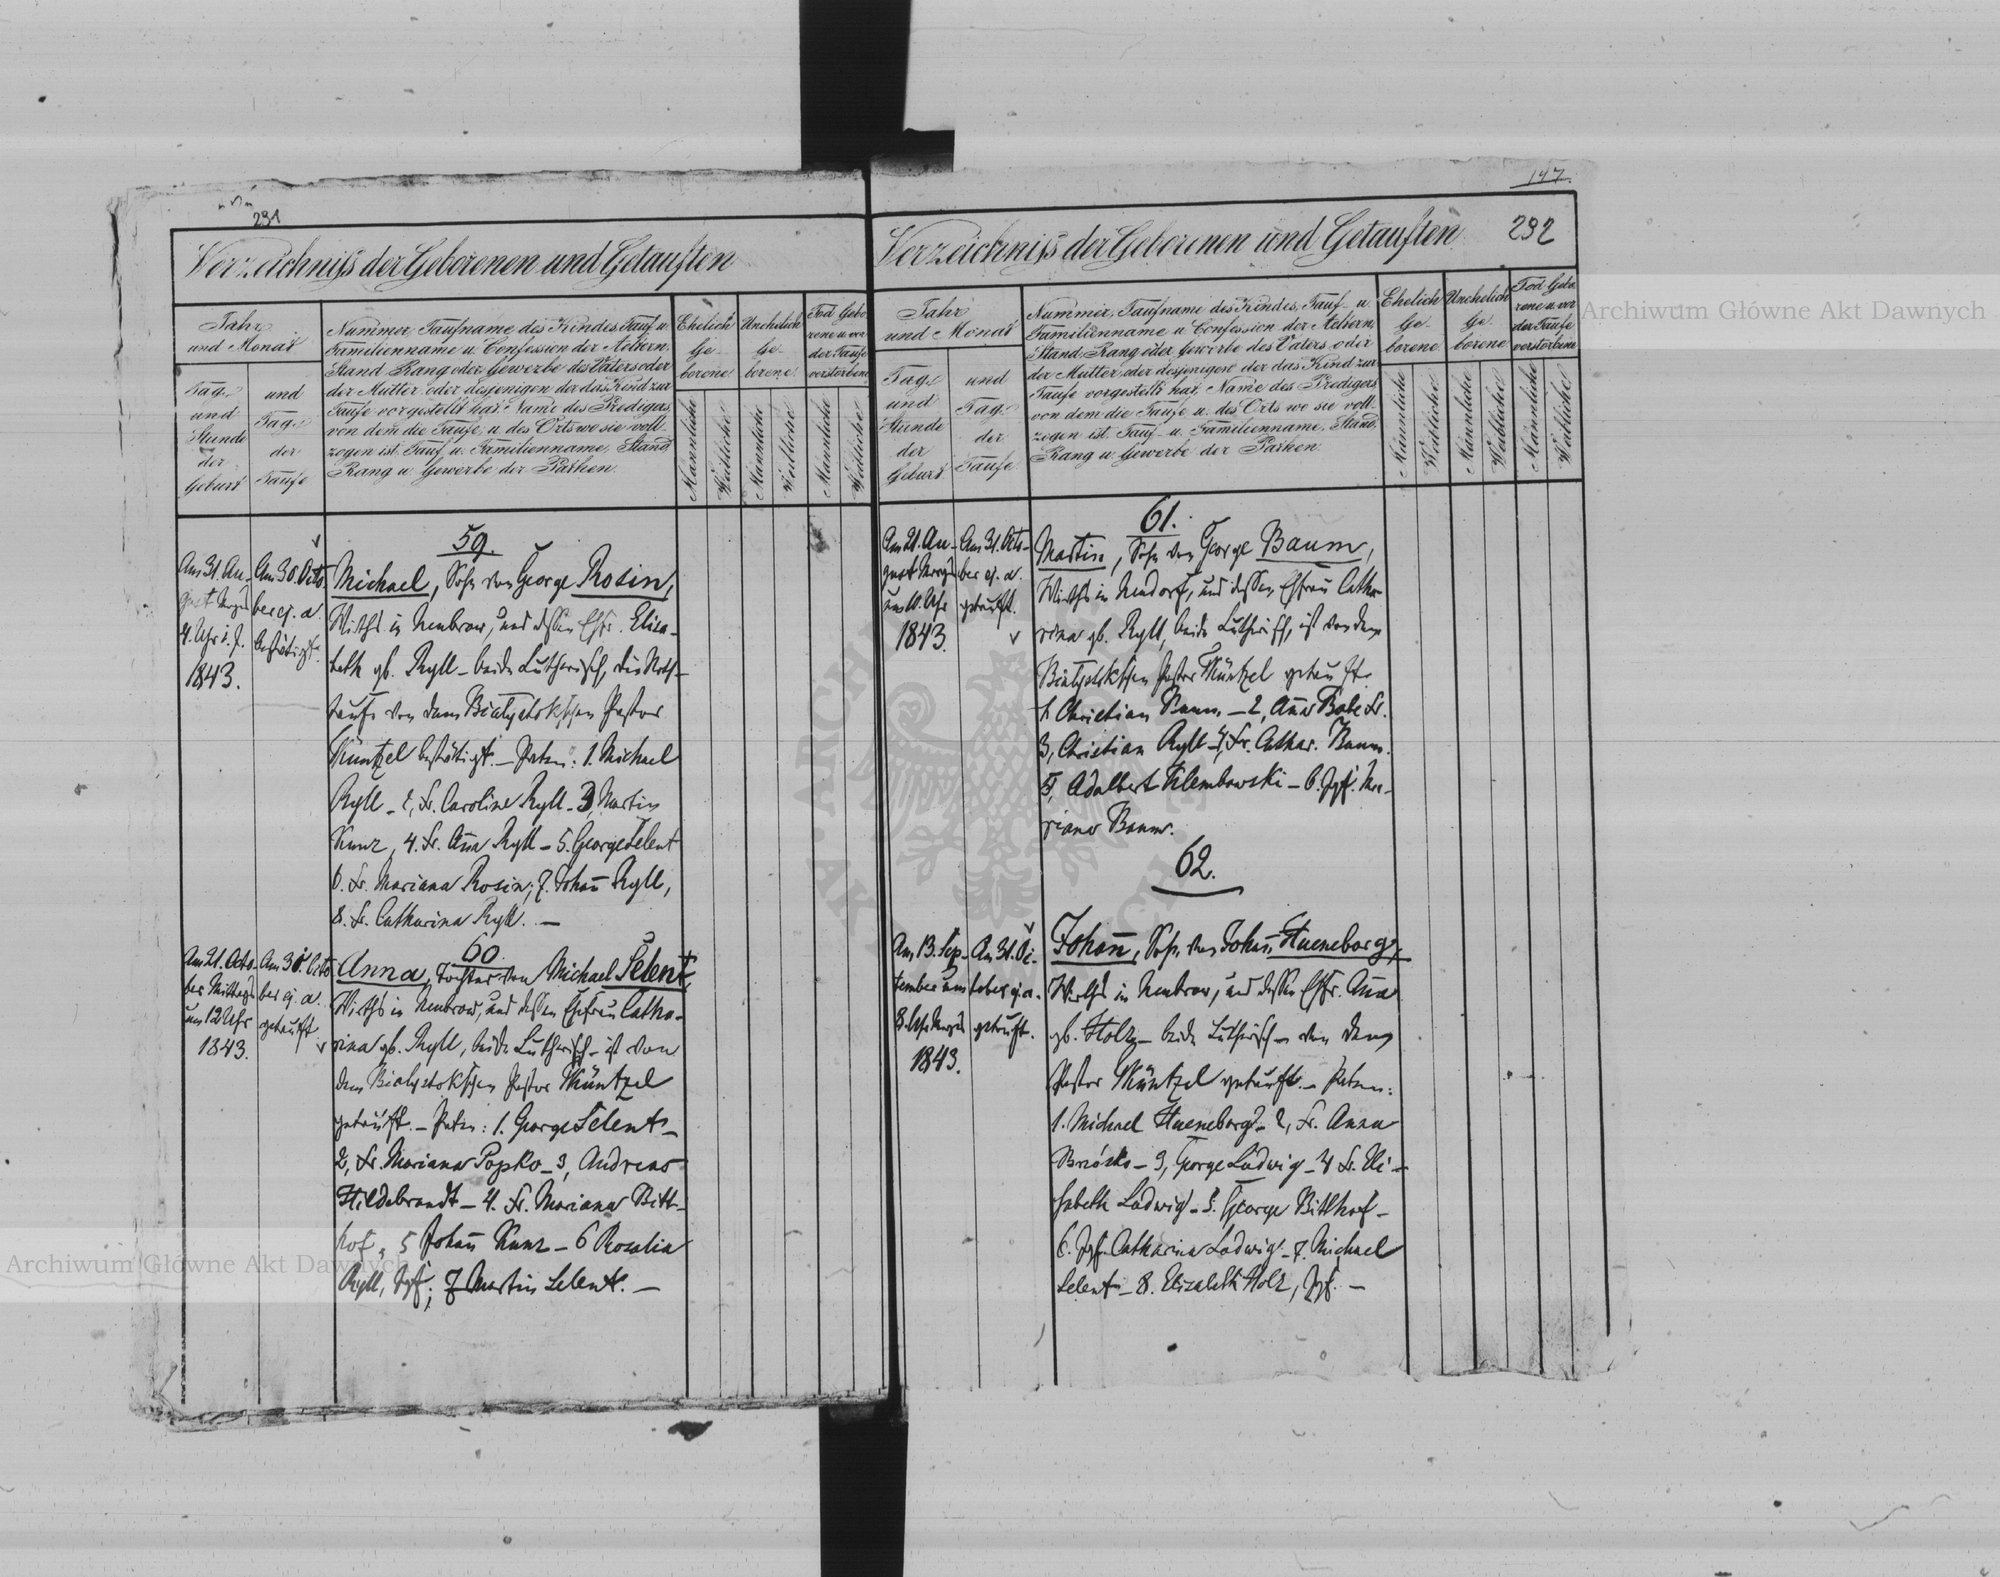 147.
231
Verzeichniss der Geborenen und Getauften
Jahr
und Monat
Tag
und
Stunde
der
Geburt
und
Tag
der
Taufe
Nummer, Taufname des Kindes, Tauf u.
Familienname u. Confession der Aeltern,
Stand, Rang oder Gewerbe des Vaters oder
der Mutter, oder desjenigen der das Kind zur
Taufe vorgestellt hat, Name des Predigers,
von dem die Taufe, u. des Orts wo sie voll-
zogen ist. Tauf u. Familienname, Stand,
Rang u. Gewerbe der Pathen
Ehelich
Ge-
borene
Unehelich
Ge-
borene
Tod Gebo-
rene u. vor
der Taufe
verstorbene
Männliche
Weibliche
Männliche
Weibliche
Männliche
Weibliche
59.
Am 31. Au-
gust Morgs
4. Uhr
1843.
Am 30. Octo
ber ej. a.
bestätigt.
Michael, Sohn von George Rosin,
Wirths in Neubrow, und dessen Ehfr. Elisa-
beth gb. Ryll - beide Lutherisch, die Noth-
taufe von dem Bialystokschen Pastor
Küntzel bestätigt. - Paten: 1. Michael
Ryll - 2, Fr. Caroline Ryll - 3, Martin
Kunz, 4. Fr. Anna Ryll - 5. George Selent
6. Fr. Mariana Rosin; 7. Johann Ryll,
8. Fr. Catharina Ryll. -
60.
Am 21. Octo-
ber Mittags
um 12 Uhr
1843.
Am 31. Octo
ber ej. a.
getauft
Anna, Tochter von Michael Selent,
Wirths in Neubrow, und dessen Ehefrau Catha-
rina gb. Ryll, beide Lutherisch - ist von
dem Bialystokschen Pastor Küntzel
getauft. - Paten: 1. George Selent -
2, Fr. Mariana Popko - 3, Andreas
Hildebrandt - 4. Fr. Mariana Bitt-
hof, 5 Johann Kunz - 6 Rosalia
Ryll, Jgf; 7 Martin Selent. -
Verzeichniss der Geborenen und Getauften 232
Jahr
und Monat
Tag
und
Stunde
der
Geburt
und
Tag
der
Taufe
Nummer, Taufname des Kindes, Tauf- u.
Familienname u. Confession der Aeltern,
Stand, Rang oder Gewerbe des Vaters oder
der Mutter, oder desjenigen der das Kind zur
Taufe vorgestellt hat, Name des Predigers
von dem die Taufe u. des Orts wo sie voll-
zogen ist. Tauf- u. Familienname, Stand,
Rang u. Gewerbe der Pathen
Ehelich
Ge-
borene
Unehelich
Ge-
borene
Tod Gebo-
rene u. vor
der Taufe
verstorbene
Männliche
Weibliche
Männliche
Weibliche
Männliche
Weibliche
61.
Am 21. Au-
gust Morgs
um 11. Uhr
1843.
Am 31. Octo-
ber ej. a.
getauft.
Martin, Sohn von George Baum,
Wirths in Neudorf, und dessen Ehfrau Catha-
rina gb. Ryll, beide Lutherisch, ist von dem
Bialystokschen Pastor Küntzel getauft.
1. Christian Baum - 2, Anna Bobe Fr.
3, Christian Ryll - 4, Fr. Cathar. Baum.
5, Adalbert Klembowski - 6. Jgf. Ma-
riana Baum.
62.
Am 13. Sep-
tember um
8. Uhr Morgs
1843.
Am 31. Oc-
tober ej. a.
getauft.
Johann, Sohn von Johann Hueneborg,
Wirths in Neubrow, und dessen Ehfr. Anna
gb. Holz - beide Lutherisch - von dem
Pastor Küntzel getauft. - Paten:
1. Michael Hueneborg - 2, Fr. Anna
Brzósko - 3, George Ludwig - 4 Fr. Eli-
sabeth Ludwig - 5. George Bitthof -
6. Jgf. Catharina Ludwig - 7. Michael
Selent - 8. Elisabeth Holz, Jgf. -
Archiwum Główne Akt Dawnych
Archiwum Główne Akt Dawnych